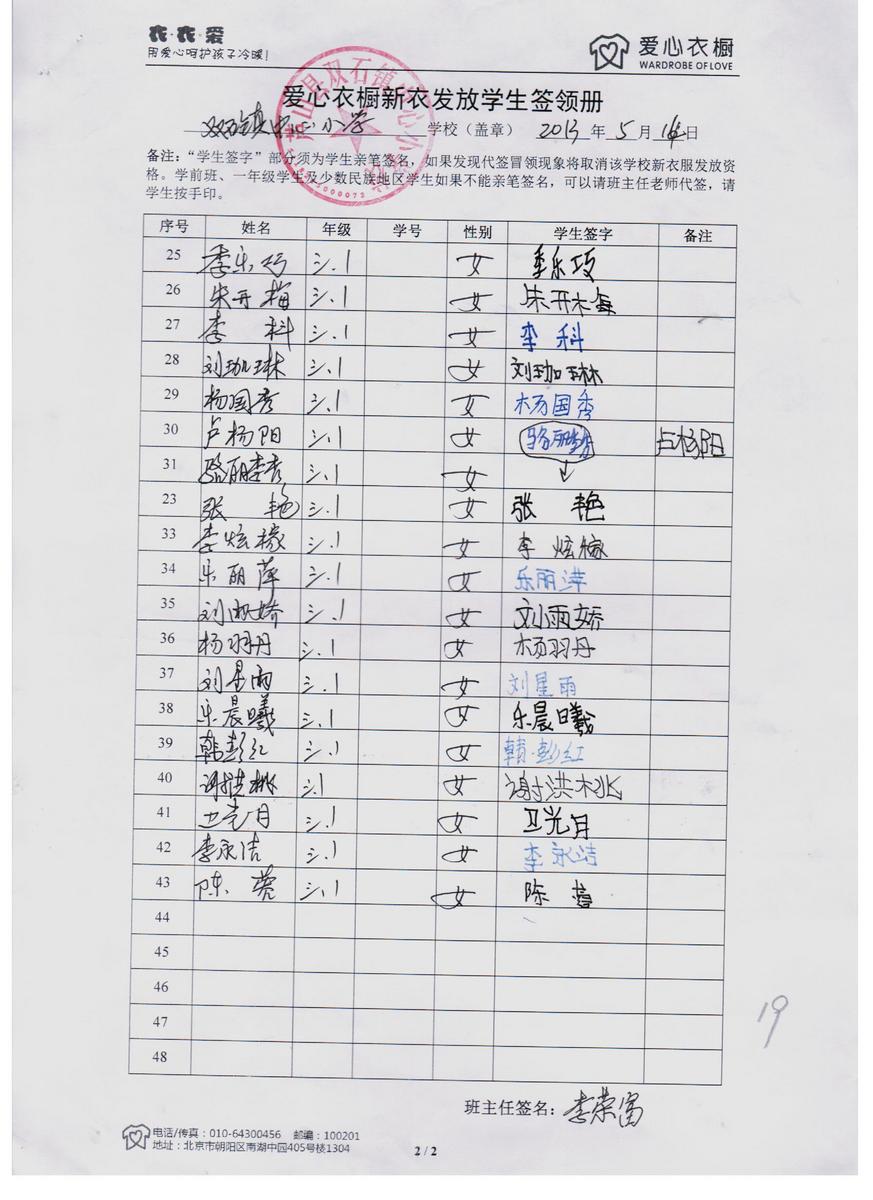 衣·衣·爱
用爱心呵护孩子冷暖!
爱心衣橱
WARDROBE OF LOVE
爱心衣橱新衣发放学生签领册
双石镇中心小学 学校（盖章） 2013 年 5 月 14 日
备注：“学生签字”部分须为学生亲笔签名，如果发现代签冒领现象将取消该学校新衣服发放资
格。学前班、一年级学生及少数民族地区学生如果不能亲笔签名，可以请班主任老师代签，请
学生按手印。
序号 姓名 年级 学号 性别 学生签字 备注
25 季乐巧 三.1 女 季乐巧
26 朱开梅 三.1 女 朱开梅
27 李科 三.1 女 李科
28 刘珈琳 三.1 女 刘珈琳
29 杨国秀 三.1 女 杨国秀
30 卢杨阳 三.1 女 卢杨阳
31 骆丽 三.1 女
23 张艳 三.1 女 张艳
33 李炫稼 三.1 女 李炫稼
34 乐丽萍 三.1 女 乐丽萍
35 刘雨娇 三.1 女 刘雨娇
36 杨羽丹 三.1 女 杨羽丹
37 刘星雨 三.1 女 刘星雨
38 乐晨曦 三.1 女 乐晨曦
39 韩彭红 三.1 女 韩彭红
40 谢洪桃 三.1 女 谢洪桃
41 卫光月 三.1 女 卫光月
42 李永洁 三.1 女 李永洁
43 陈蓉 三.1 女 陈蓉
44
45
46
47
48
19
班主任签名：李荣富
电话/传真：010-64300456 邮编：100201
地址：北京市朝阳区南湖中园405号楼1304
2 / 2